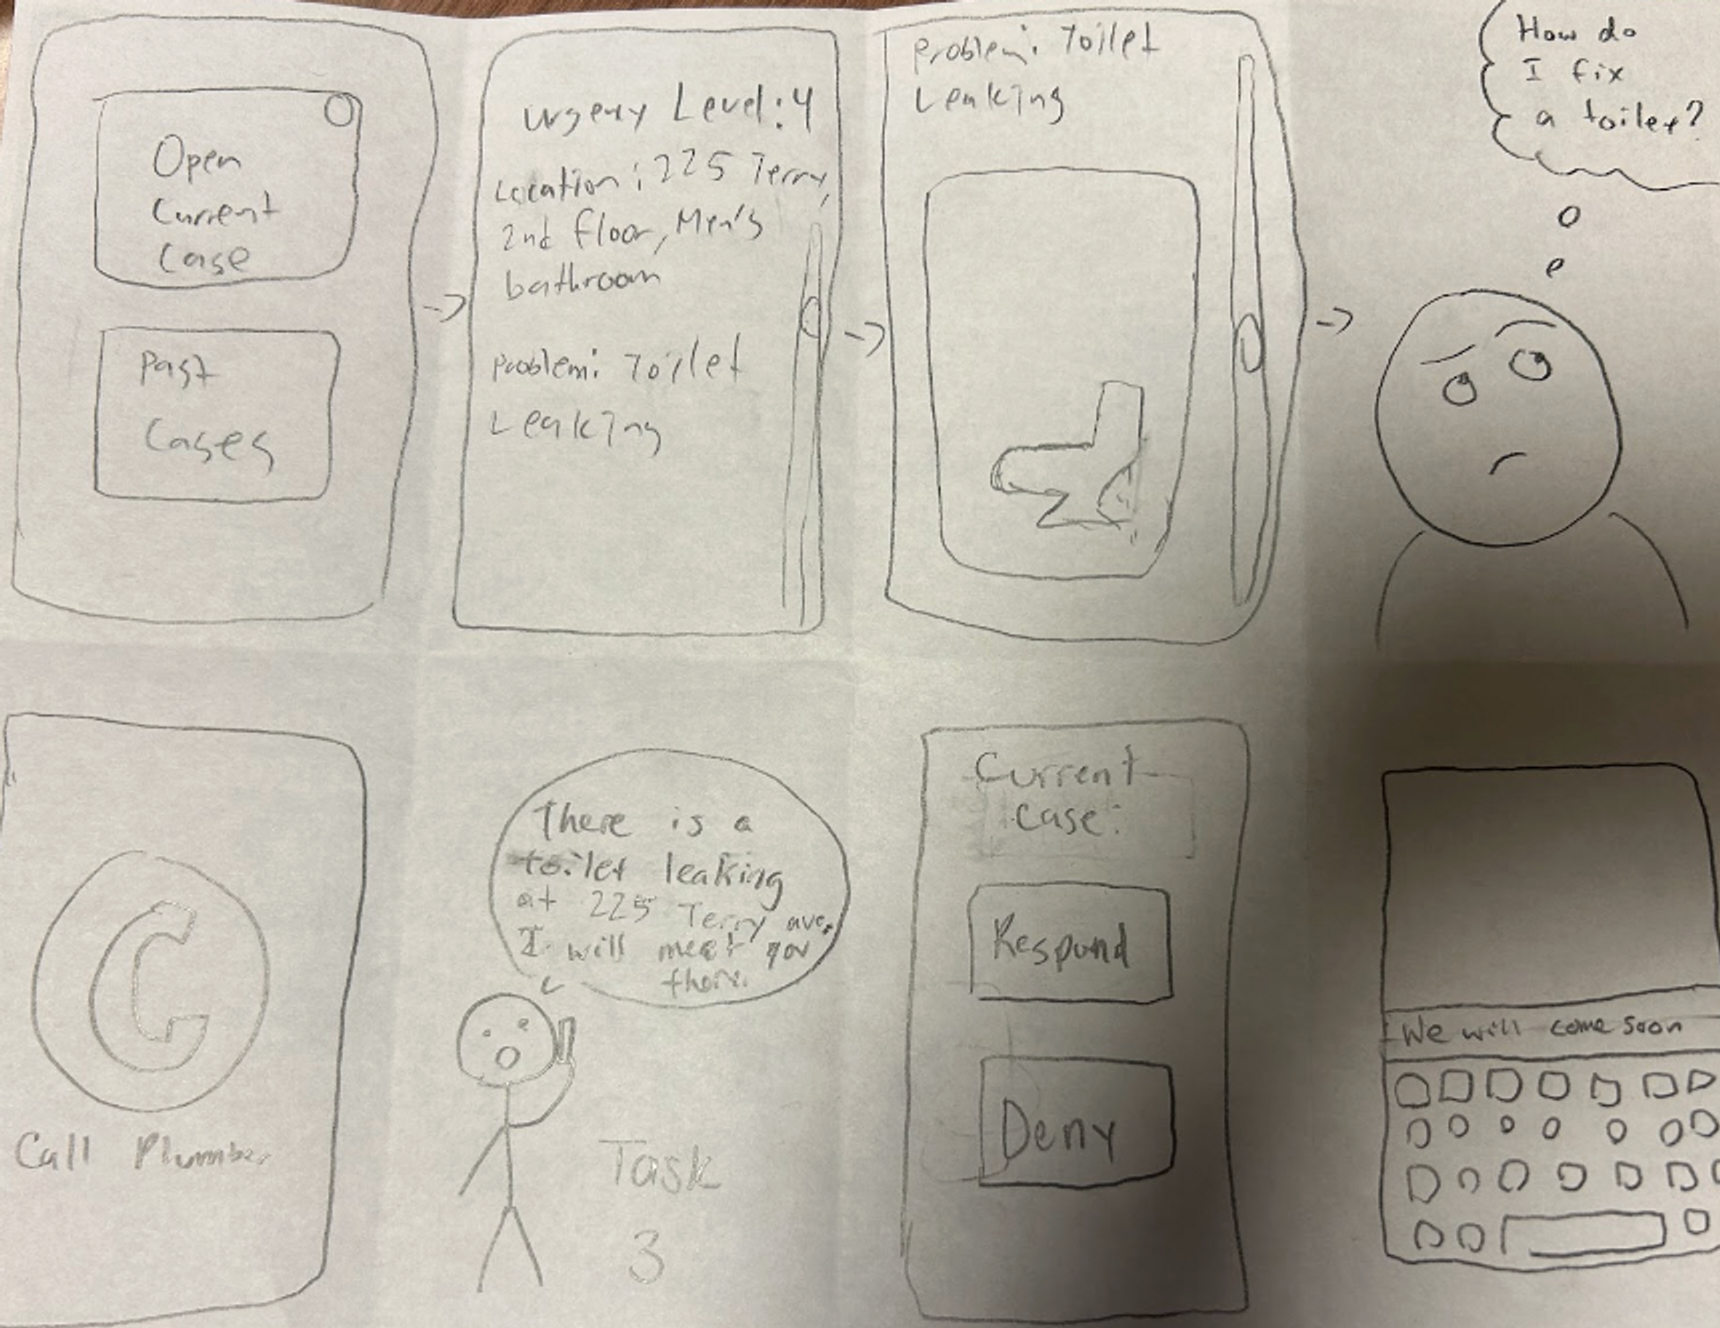 Open
Current
Case
Past
Cases
Urgency Level: 4
Location: 225 Terry,
2nd floor, Men's
bathroom
Problem: Toilet
Leaking
Problem: Toilet
Leaking
How do
I fix
a toilet?
C
Call Plumber
There is a
toilet leaking
at 225 Terry ave,
I will meet you
there.
Task
3
Current
Case:
Respond
Deny
We will come soon